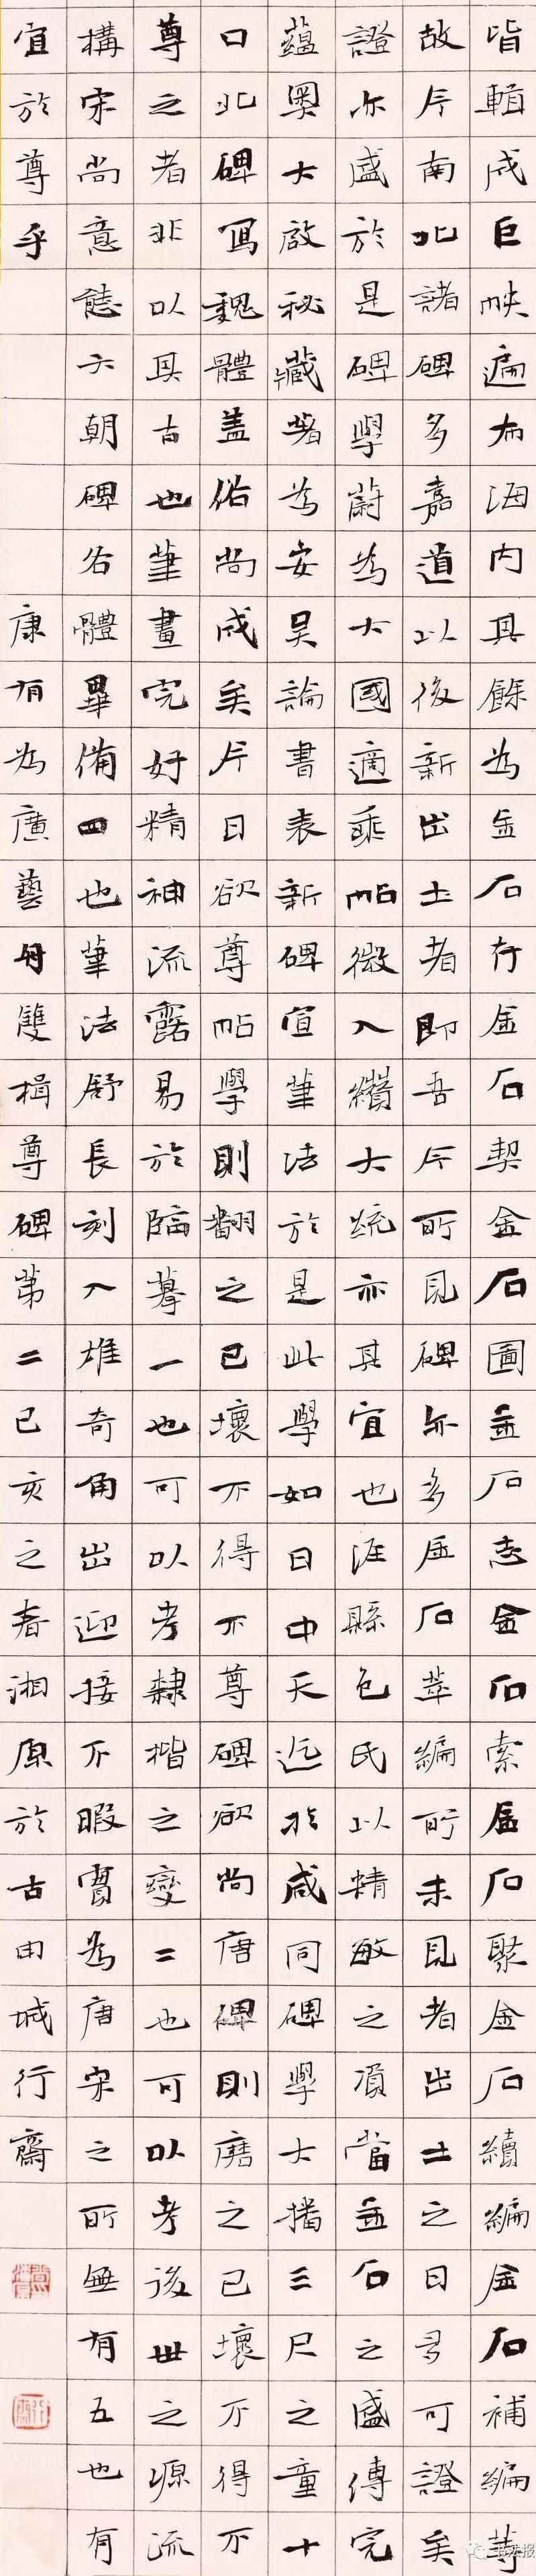 皆輯成巨帙遍布海内其餘為金石存金石契金石圖金石志金石索金石聚金石續編金石補編等
故今南北諸碑多嘉道以後新出土者即吾今所見碑亦多金石萃編所未見者出土之日多可證矣
證亦盛於是碑學蔚為大國適乘帖微入纘大統亦其宜也涇縣包氏以精敏之資當金石之盛傳完
蘊奥大啟秘藏著為安吳論書表新碑宣筆法於是此學如日中天迄於咸同碑學大播三尺之童十
口北碑寫魏體蓋俗尚成矣今日欲尊帖學則翻之已壞不得不尊碑欲尚唐碑則磨之已壞不得不
尊之者非以其古也筆畫完好精神流露易於臨摹一也可以考隸楷之變二也可以考後世之源流
構宋尚意態六朝碑各體畢備四也筆法舒長刻入雄奇角出迎接不暇實為唐宋之所無有五也有
宜於尊乎 康有為廣藝舟雙楫尊碑第二己亥之春湘原於古田城行齋
书法报